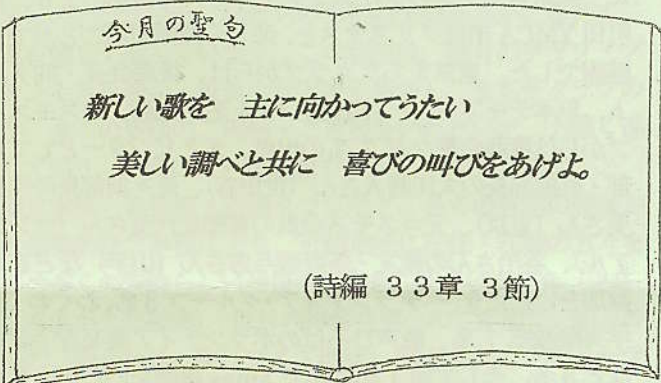 今月の聖句
新しい歌を 主に向かってうたい
美しい調べと共に 喜びの叫びをあげよ。
(詩編 33章 3節)